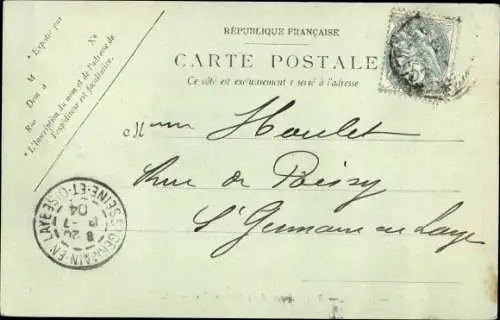 RÉPUBLIQUE FRANÇAISE
CARTE POSTALE
Ce côté est exclusivement réservé à l'adresse
* Expédié par
M
N°
Dem à
Rue
* L'inscription du nom et de l'adresse de
l'expéditeur est facultative.
Mme Houlet
Rue de Poissy
St Germain en Laye
ST GERMAIN-EN-LAYE
SEINE-ET-OISE
8 20
-7
04